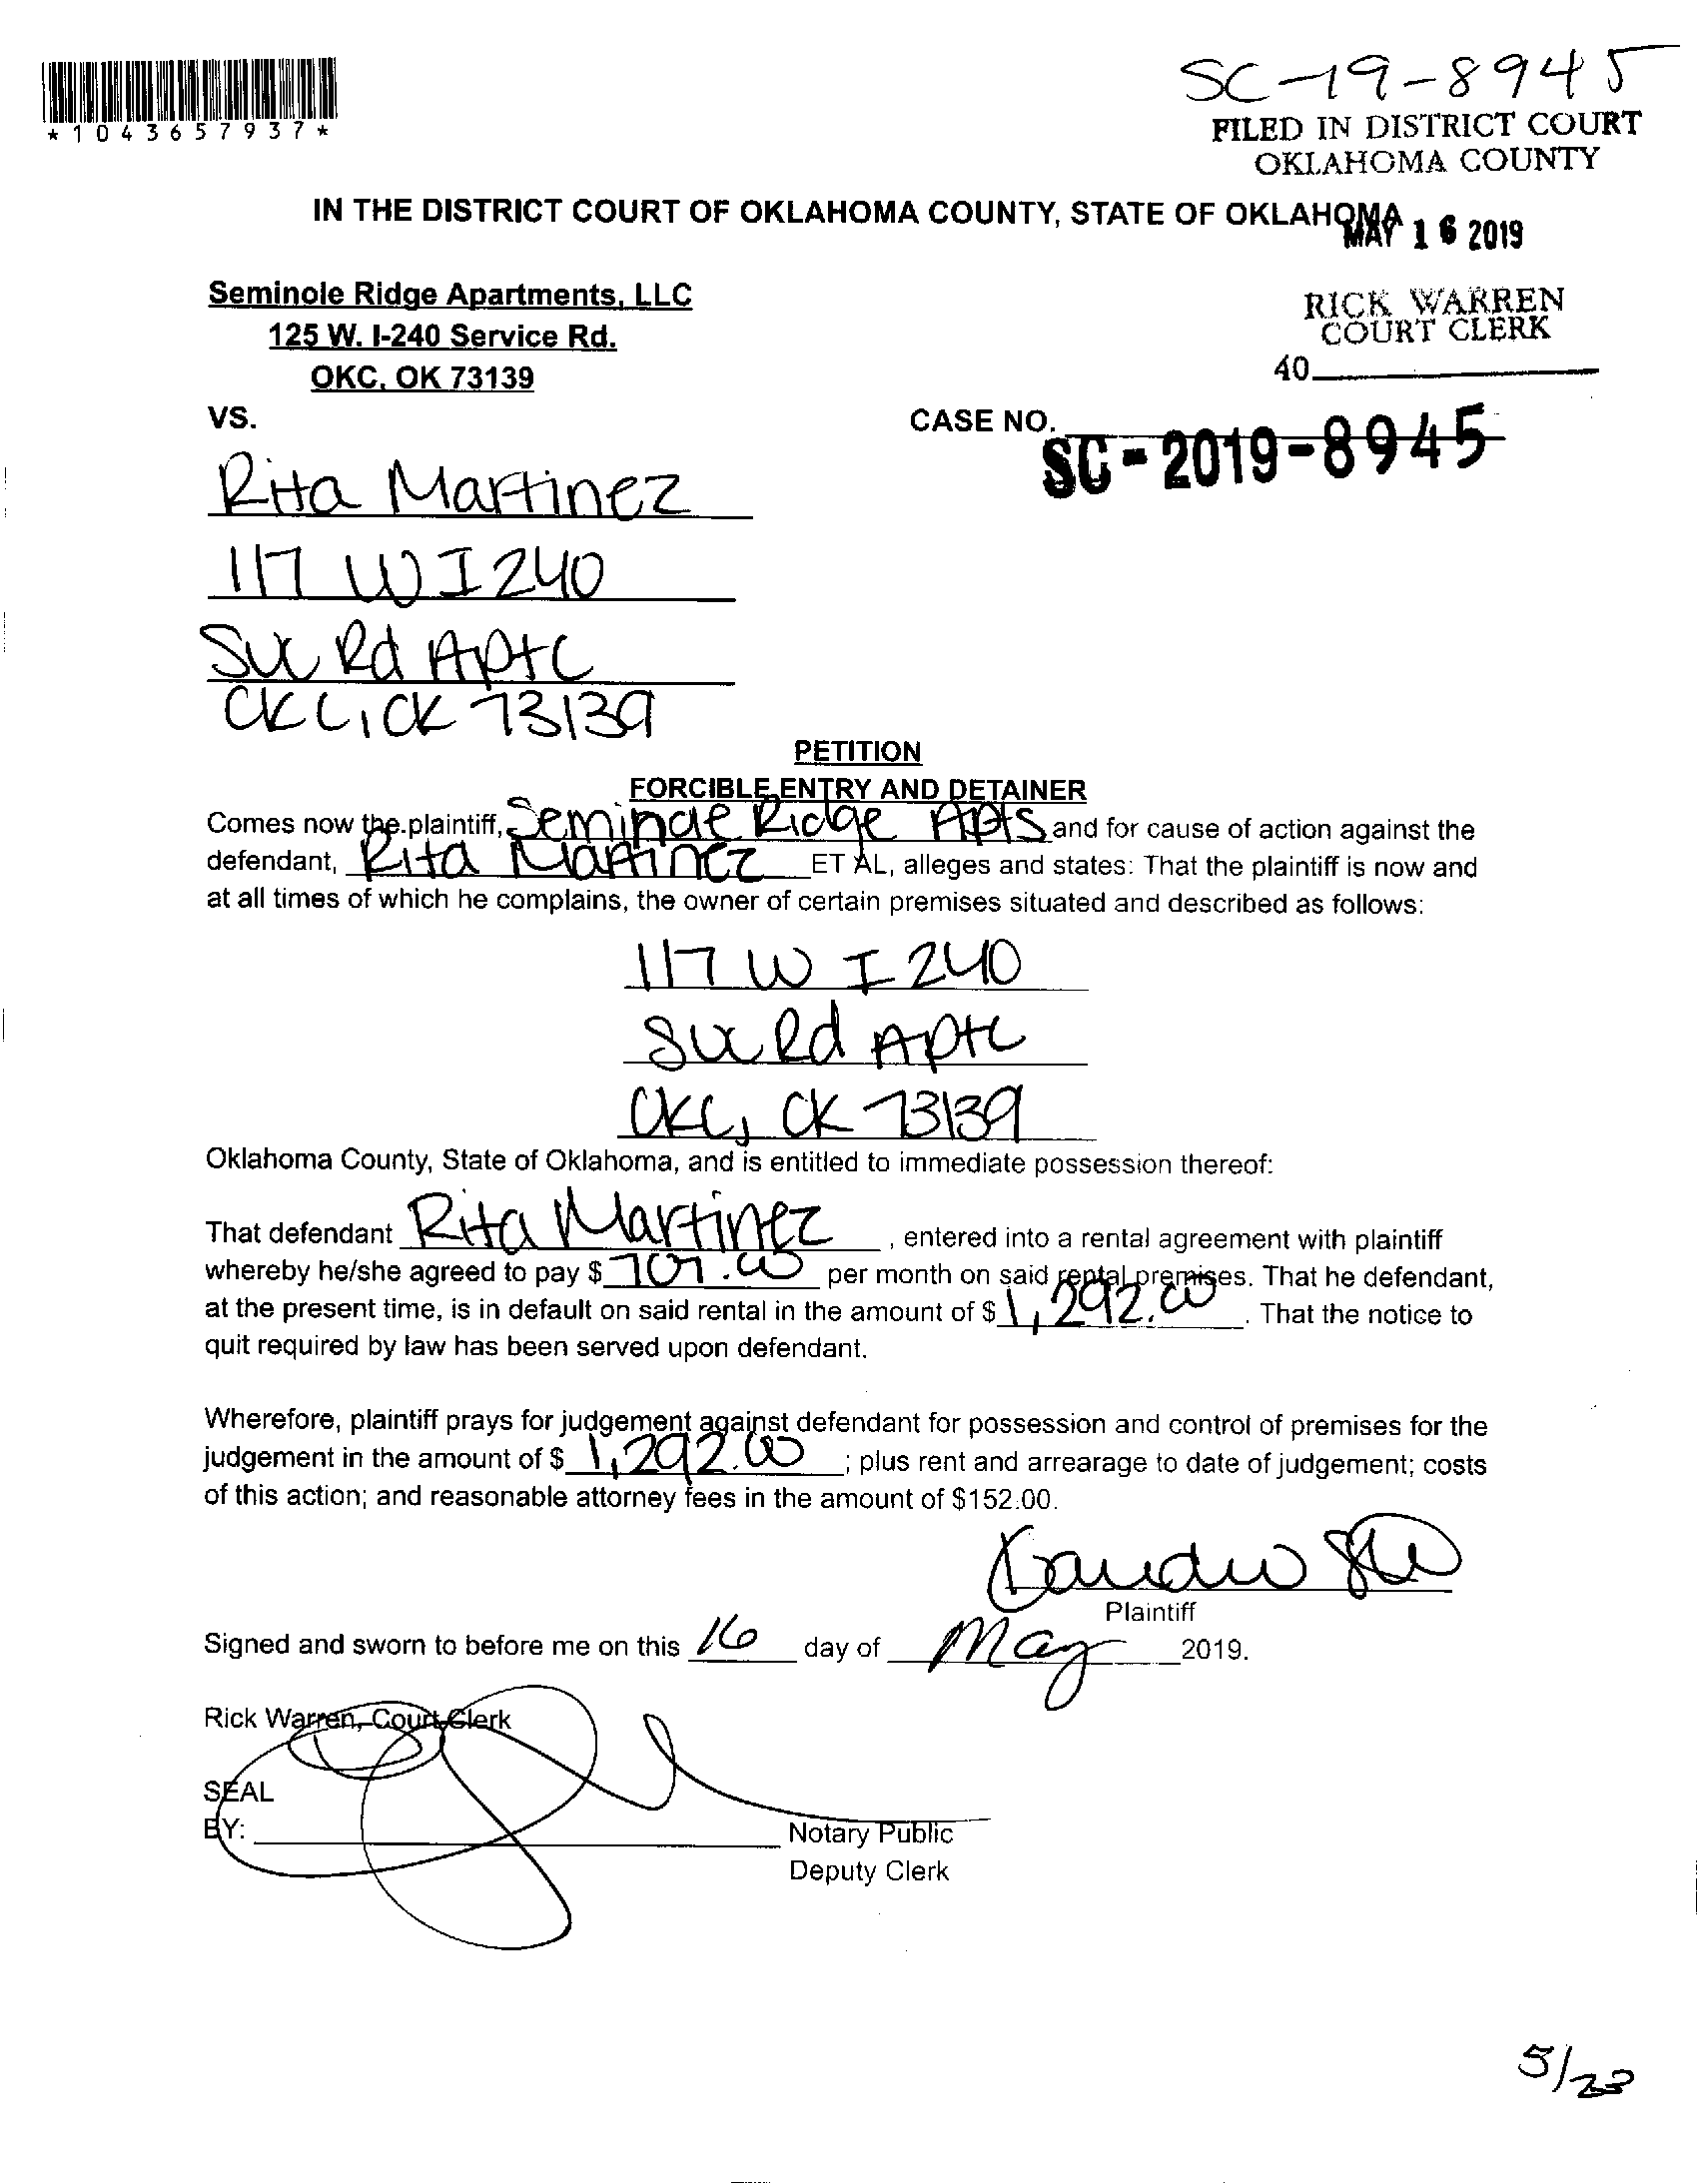 SC-19-8945
*1043657937*
FILED IN DISTRICT COURT
OKLAHOMA COUNTY
IN THE DISTRICT COURT OF OKLAHOMA COUNTY, STATE OF OKLAHOMA
MAY 16 2019
Seminole Ridge Apartments, LLC
125 W. I-240 Service Rd.
OKC, OK 73139
RICK WARREN
COURT CLERK
40
VS.
CASE NO.
SC-2019-8945
Rita Martinez
117 W I 240
Svc Rd Apt C
OKC, OK 73139
PETITION
FORCIBLE ENTRY AND DETAINER
Comes now the plaintiff, Seminole Ridge Apts and for cause of action against the
defendant, Rita Martinez ET AL, alleges and states: That the plaintiff is now and
at all times of which he complains, the owner of certain premises situated and described as follows:
117 W I 240
Svc Rd Apt C
OKC, OK 73139
Oklahoma County, State of Oklahoma, and is entitled to immediate possession thereof:
That defendant Rita Martinez, entered into a rental agreement with plaintiff
whereby he/she agreed to pay $ 707.00 per month on said rental premises. That he defendant,
at the present time, is in default on said rental in the amount of $ 1,292.00. That the notice to
quit required by law has been served upon defendant.
Wherefore, plaintiff prays for judgement against defendant for possession and control of premises for the
judgement in the amount of $ 1,292.00; plus rent and arrearage to date of judgement; costs
of this action; and reasonable attorney fees in the amount of $152.00.
Plaintiff
Signed and sworn to before me on this 16 day of May 2019.
Rick Warren, Court Clerk
SEAL
BY:
Notary Public
Deputy Clerk
5/23